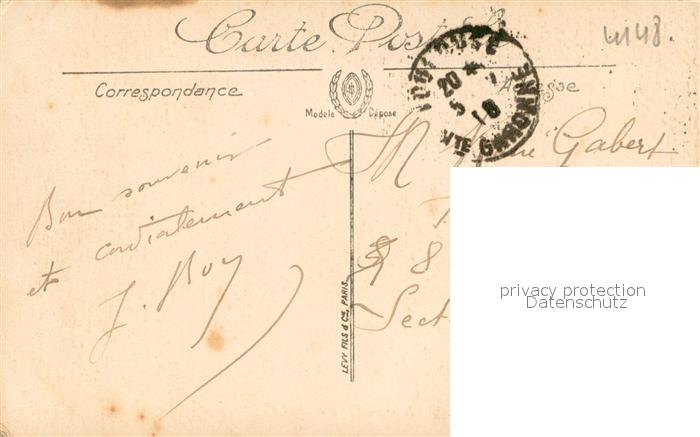 Carte Postale
4148.
Correspondance
Adresse
Modèle Déposé
TOULOUSE
20 *
5 - 1
18
HTE GARONNE
Bon souvenir
et cordialement
J. Roy
M Gabert
8
Sect
LEVY FILS & Cie, PARIS.
privacy protection
Datenschutz